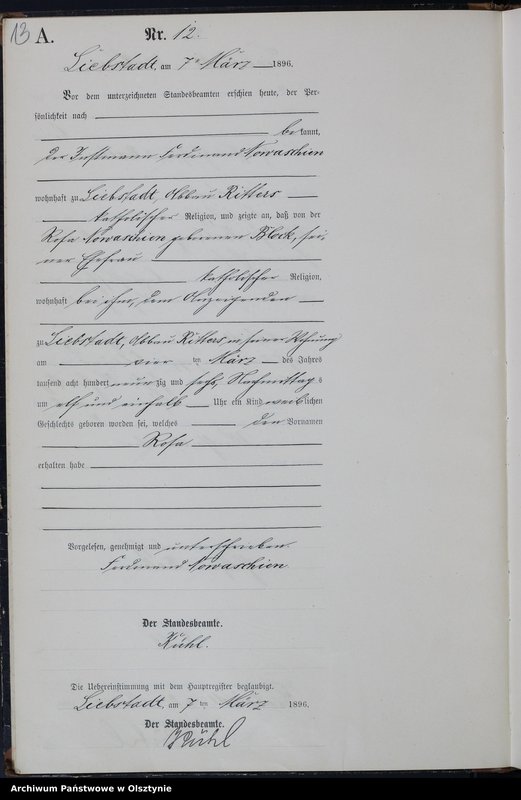 13
A.
Nr. 12.
Liebstadt, am 7t März 1896.
Vor dem unterzeichneten Standesbeamten erschien heute, der Per-
sönlichkeit nach
bekannt,
der Instmann Ferdinand Nowaschien
wohnhaft zu Liebstadt, Abbau Ritters
katholischer Religion, und zeigte an, daß von der
Rosa Nowaschien geborenen Block, sei-
ner Ehefrau
katholischer Religion,
wohnhaft bei ihm, dem Anzeigenden
zu Liebstadt, Abbau Ritters, in seiner Wohnung
am vier ten März des Jahres
tausend acht hundert neunzig und sechs, Nachmittags
um elf und einhalb Uhr ein Kind weiblichen
Geschlechts geboren worden sei, welches den Vornamen
Rosa
erhalten habe
Vorgelesen, genehmigt und unterschrieben.
Ferdinand Nowaschien
Der Standesbeamte.
Kühl.
Die Uebereinstimmung mit dem Hauptregister beglaubigt.
Liebstadt, am 7 ten März 1896.
Der Standesbeamte.
Kühl
Archiwum Państwowe w Olsztynie